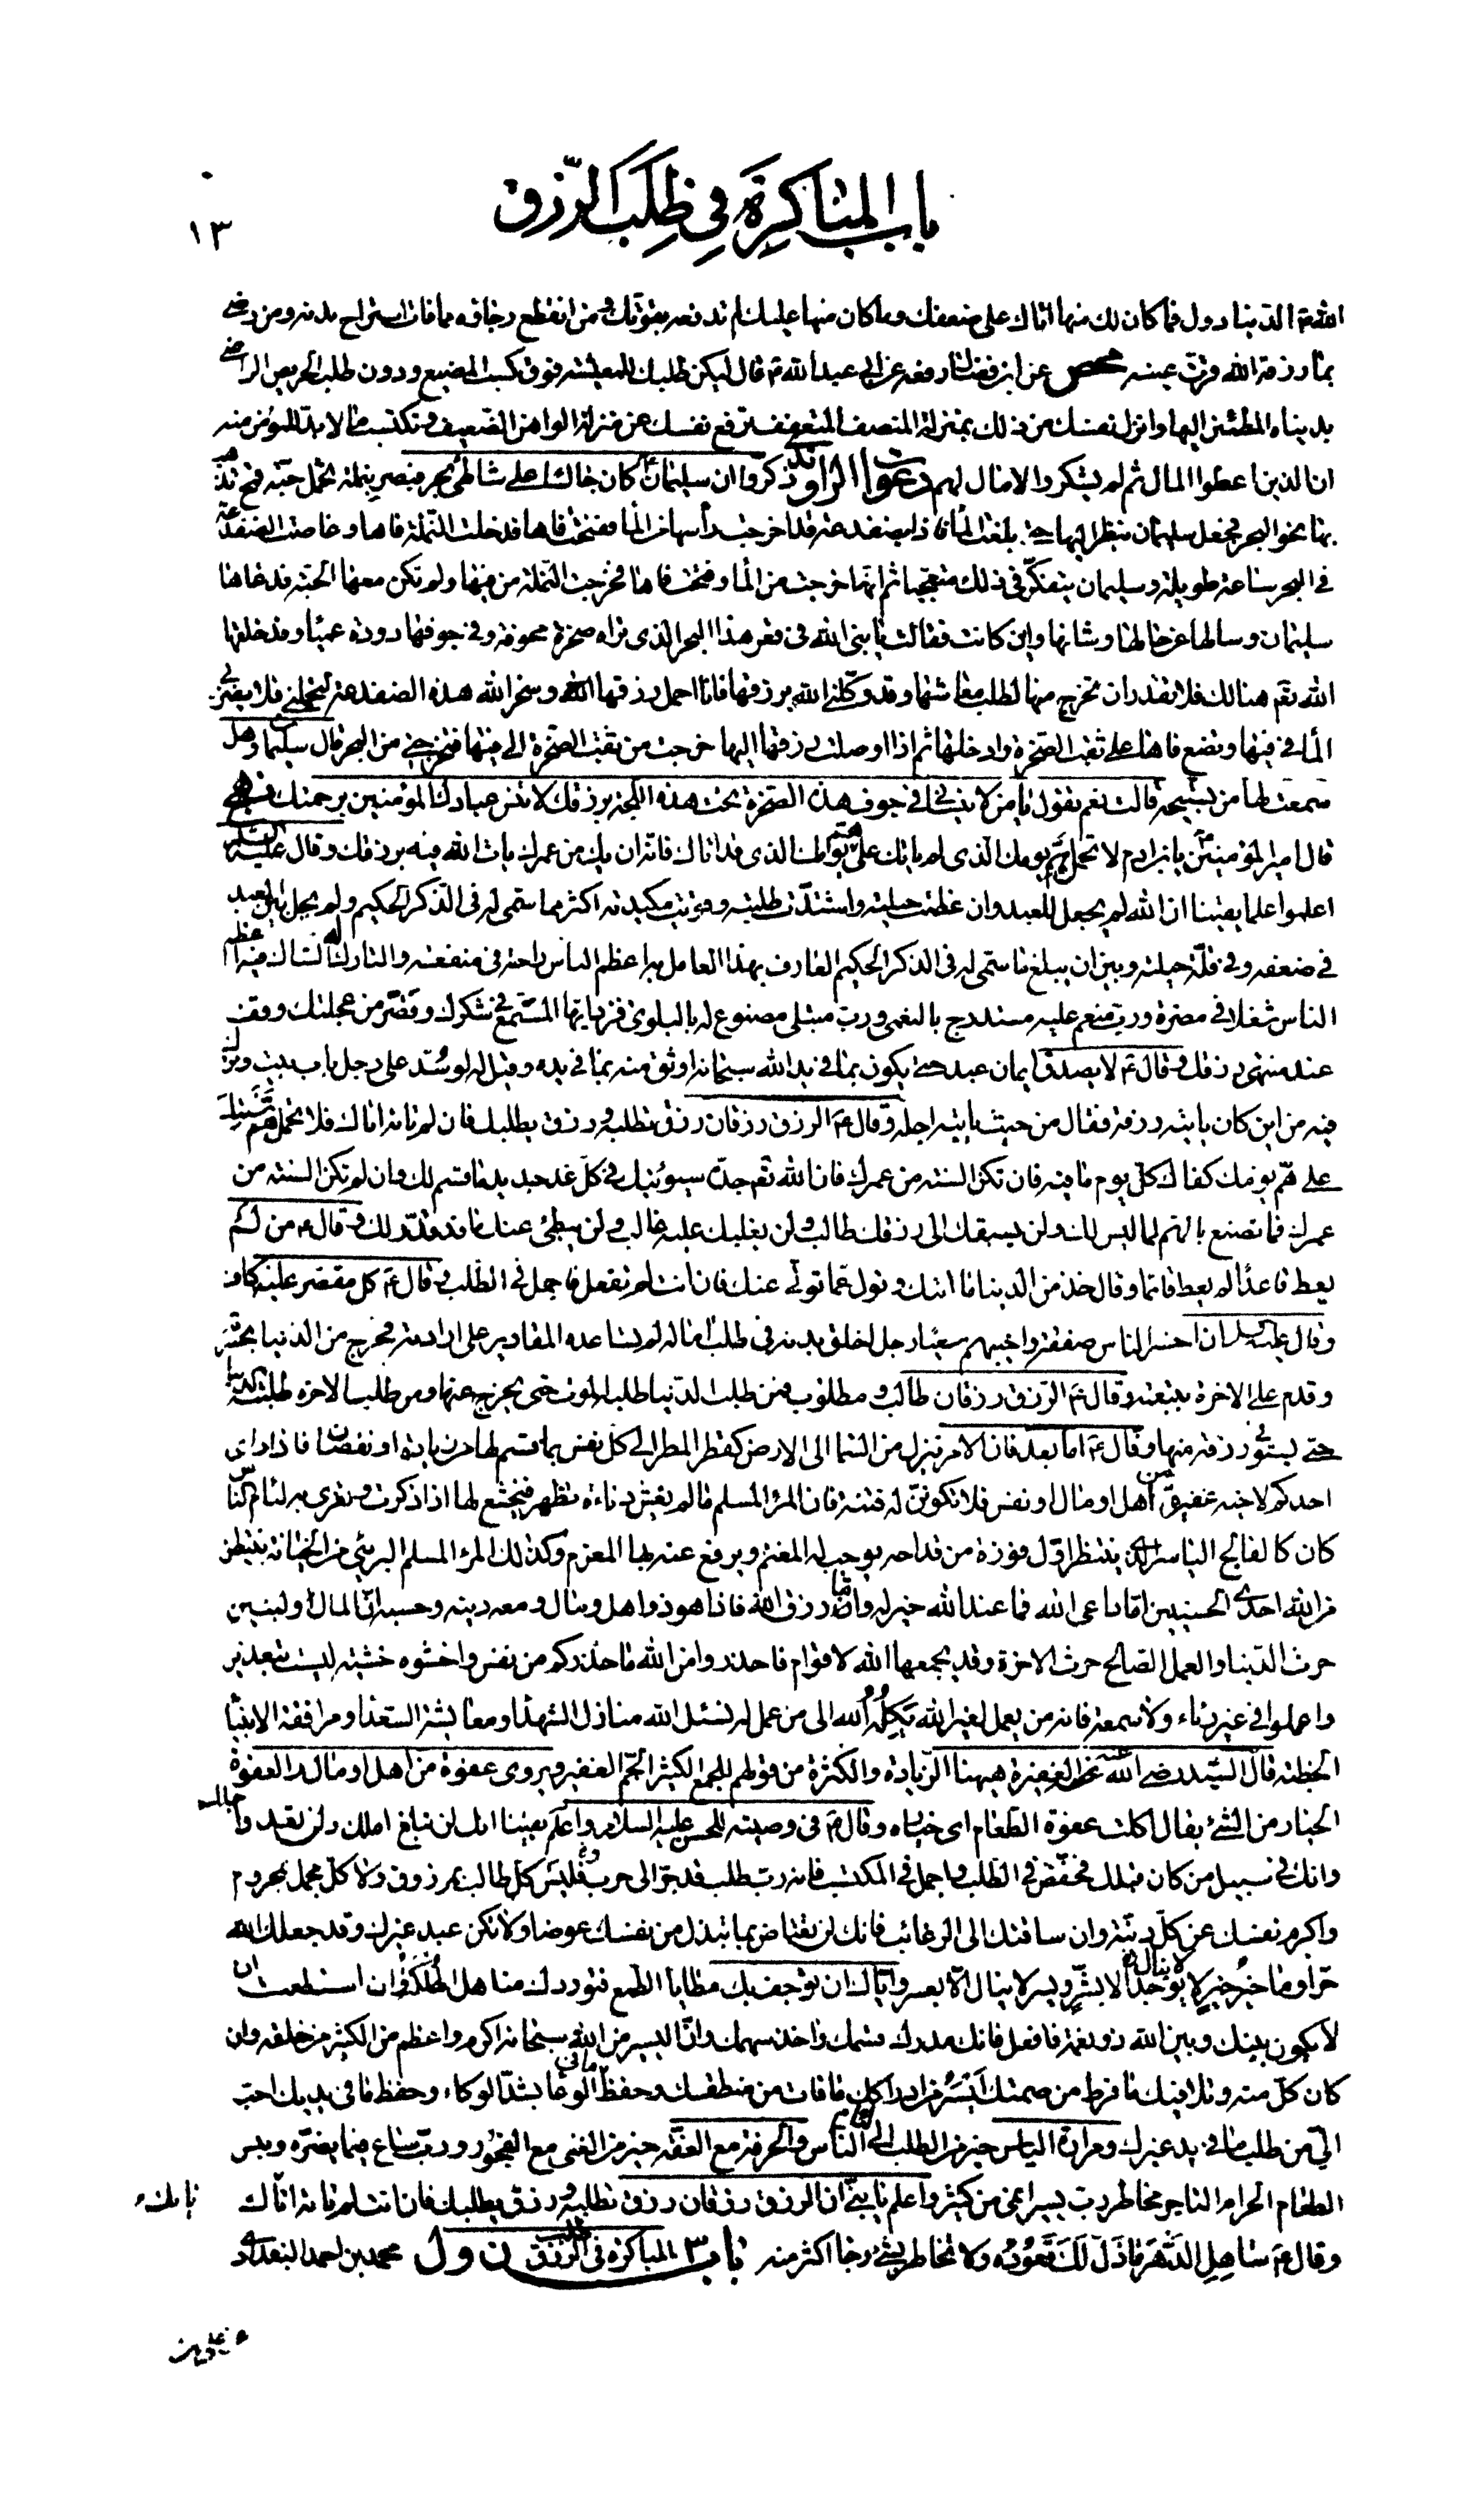 باب المباكرة في طلب الرزق
١٣
الله ع الدنيا دول فما كان لك منها اتاك على ضعفك وما كان منها عليك لم تدفعه بقوتك ومن انقطع رجاؤه مما فات استراح بدنه ومن رضى
بما رزقه الله قرت عينه محص عن ابن فضال رفعه عن ابي عبد الله ع قال ليكن طلبك المعيشة فوق كسب المضيع ودون طلب الحريص الراضى
بدنياه المطمئن اليها وانزل نفسك من ذلك بمنزلة المنصف المتعفف ترفع نفسك عن منزلة الواهن الضعيف وتكتسب ما لا بد للمؤمن منه
ان الذين اعطوا المال ثم لم يشكروا لا مال لهم دعوات الراوندى ذكروا ان سليمان ع كان جالسا على شاطئ بحر فبصر بنملة تحمل حبة قمح تذهب
بها نحو البحر فجعل سليمان ينظر اليها حتى بلغت الماء فاذا بضفدعة قد اخرجت رأسها من الماء ففتحت فاها فدخلت النملة فاها وغاصت الضفدعة
في البحر ساعة طويلة وسليمان يتفكر في ذلك متعجبا ثم انها خرجت من الماء وفتحت فاها فخرجت النملة من فيها ولم تكن معها الحبة فدعاها
سليمان وسالها عن حالها وشانها واين كانت فقالت يا نبي الله في قعر هذا البحر الذى تراه صخرة مجوفة وفي جوفها دودة عمياء وقد خلقها
الله تعم هنالك فلا تقدر ان تخرج منها لطلب معاشها وقد وكلني الله برزقها فانا احمل رزقها وسخر الله هذه الضفدعة لتحملني فلا يضرني
الماء في فيها وتضع فاها على ثقب الصخرة وادخلها ثم اذا اوصلت رزقها اليها خرجت من ثقب الصخرة الى فيها فتخرجني من البحر قال سليمان وهل
سمعت لها من تسبيحة قالت نعم تقول يا من لا ينساني في جوف هذه الصخرة تحت هذه اللجة برزقك لا تنس عبادك المؤمنين برحمتك نهج
قال امير المؤمنين ع يا ابن ادم لا تحمل هم يومك الذى لم ياتك على يومك الذى قد اتاك فانه ان يك من عمرك يات الله فيه برزقك وقال عليه السلام
اعلموا علما يقينا ان الله لم يجعل للعبد وان عظمت حيلته واشتدت طلبته وقويت مكيدته اكثر مما سمى له في الذكر الحكيم ولم يحل بين العبد
في ضعفه وفي قلة حيلته وبين ان يبلغ ما سمى له في الذكر الحكيم العارف بهذا العامل به اعظم الناس راحة في منفعته والتارك له الشاك فيه اعظم
الناس شغلا في مضرة ورب منعم عليه مستدرج بالنعمى ورب مبتلى مصنوع له بالبلوى فزد ايها المستمع في شكرك وقصر من عجلتك وقف
عند منتهى رزقك وقال ع لا يصدق ايمان عبد حتى يكون بما في يد الله سبحانه اوثق منه بما في يده وقيل له لو سد على رجل باب بيت وترك
فيه من اين كان ياتيه رزقه فقال من حيث ياتيه اجله وقال ع الرزق رزقان رزق تطلبه ورزق يطلبك فان لم تاته اتاك فلا تحمل هم سنتك
على هم يومك كفاك كل يوم ما فيه فان تكن السنة من عمرك فان الله تعم جده سيؤتيك في كل غد جديد ما قسم لك وان لم تكن السنة من
عمرك فما تصنع بالهم لما ليس لك ولن يسبقك الى رزقك طالب ولن يغلبك عليه غالب ولن يبطئ عنك ما قد قدر لك وقال ع من لم
يعط قاعدا لم يعط قائما وقال خذ من الدنيا ما اتاك وتول عما تولى عنك فان انت لم تفعل فاجمل في الطلب وقال ع كل مقتصر عليه كاف
وقال عليه السلام ان اخسر الناس صفقة واخيبهم سعيا رجل اخلق بدنه في طلب ماله لم تساعده المقادير على ارادته فخرج من الدنيا بحسرته
وقدم على الاخرة بتبعته وقال ع الرزق رزقان طالب ومطلوب فمن طلب الدنيا طلبه الموت حتى يخرجه عنها ومن طلب الاخرة طلبته الدنيا
حتى يستوفى رزقه منها وقال ع اما بعد فان الامر ينزل من السماء الى الارض كقطر المطر الى كل نفس بما قسم لها من زيادة او نقصان فاذا راى
احدكم لاخيه غفيرة في اهل او مال او نفس فلا تكونن له فتنة فان المرء المسلم ما لم يغش دناءة تظهر فيخشع لها اذا ذكرت ويغرى به لئام الناس
كان كالفالج الياسر الذى ينتظر اول فوزة من قداحه توجب له المغنم ويرفع عنه بها المغرم وكذلك المرء المسلم البرئ من الخيانة ينتظر
من الله احدى الحسنيين اما داعى الله فما عند الله خير له واما رزق الله فاذا هو ذو اهل ومال ومعه دينه وحسبه ان المال والبنين
حرث الدنيا والعمل الصالح حرث الاخرة وقد يجمعهما الله لاقوام فاحذروا من الله ما حذركم من نفسه واخشوه خشية ليست بتعذير
واعملوا في غير رئاء ولا سمعة فانه من يعمل لغير الله يكله الله الى من عمل له نسئل الله منازل الشهداء ومعايشة السعداء ومرافقة الانبياء
الخطبة قال السيد رضى الله عنه الغفيرة ههنا الزيادة والكثرة من قولهم للجمع الكثير الجم الغفير ويروى عفوة من اهل او مال والعفوة
الخيار من الشئ يقال اكلت عفوة الطعام اى خياره وقال ع في وصيته للحسن عليه السلام واعلم يقينا انك لن تبلغ املك ولن تعدو اجلك
وانك في سبيل من كان قبلك فخفض في الطلب واجمل في المكتسب فانه رب طلب قد جر الى حرب فليس كل طالب بمرزوق ولا كل مجمل بمحروم
واكرم نفسك عن كل دنية وان ساقتك الى الرغائب فانك لن تعتاض بما تبذل من نفسك عوضا ولا تكن عبد غيرك وقد جعلك الله
حرا وما خير خير لا يوجد الا بشر ويسر لا ينال الا بعسر واياك ان توجف بك مطايا الطمع فتوردك مناهل الهلكة وان استطعت ان
لا يكون بينك وبين الله ذو نعمة فافعل فانك مدرك قسمك واخذ سهمك وان اليسير من الله سبحانه اكرم واعظم من الكثير من خلقه وان
كان كل منه وتلافيك ما فرط من صمتك ايسر من ادراك ما فات من منطقك وحفظ ما في الوعاء بشد الوكاء وحفظ ما في يديك احب
الى من طلب ما في يد غيرك ومرارة الياس خير من الطلب الى الناس والحرفة مع العفة خير من الغنى مع الفجور ورب ساع فيما يضره وبئس
الطعام الحرام التاجر مخاطر رب يسير انمى من كثير واعلم يا بنى ان الرزق رزقان رزق تطلبه ورزق يطلبك فان انت لم تاته اتاك
وقال ع ساهل الدهر ما ذل لك قعوده ولا تخاطر بشئ رجاء اكثر منه باب ٣ المباكرة في طلب الرزق ن ول محمد بن احمد البغدادى